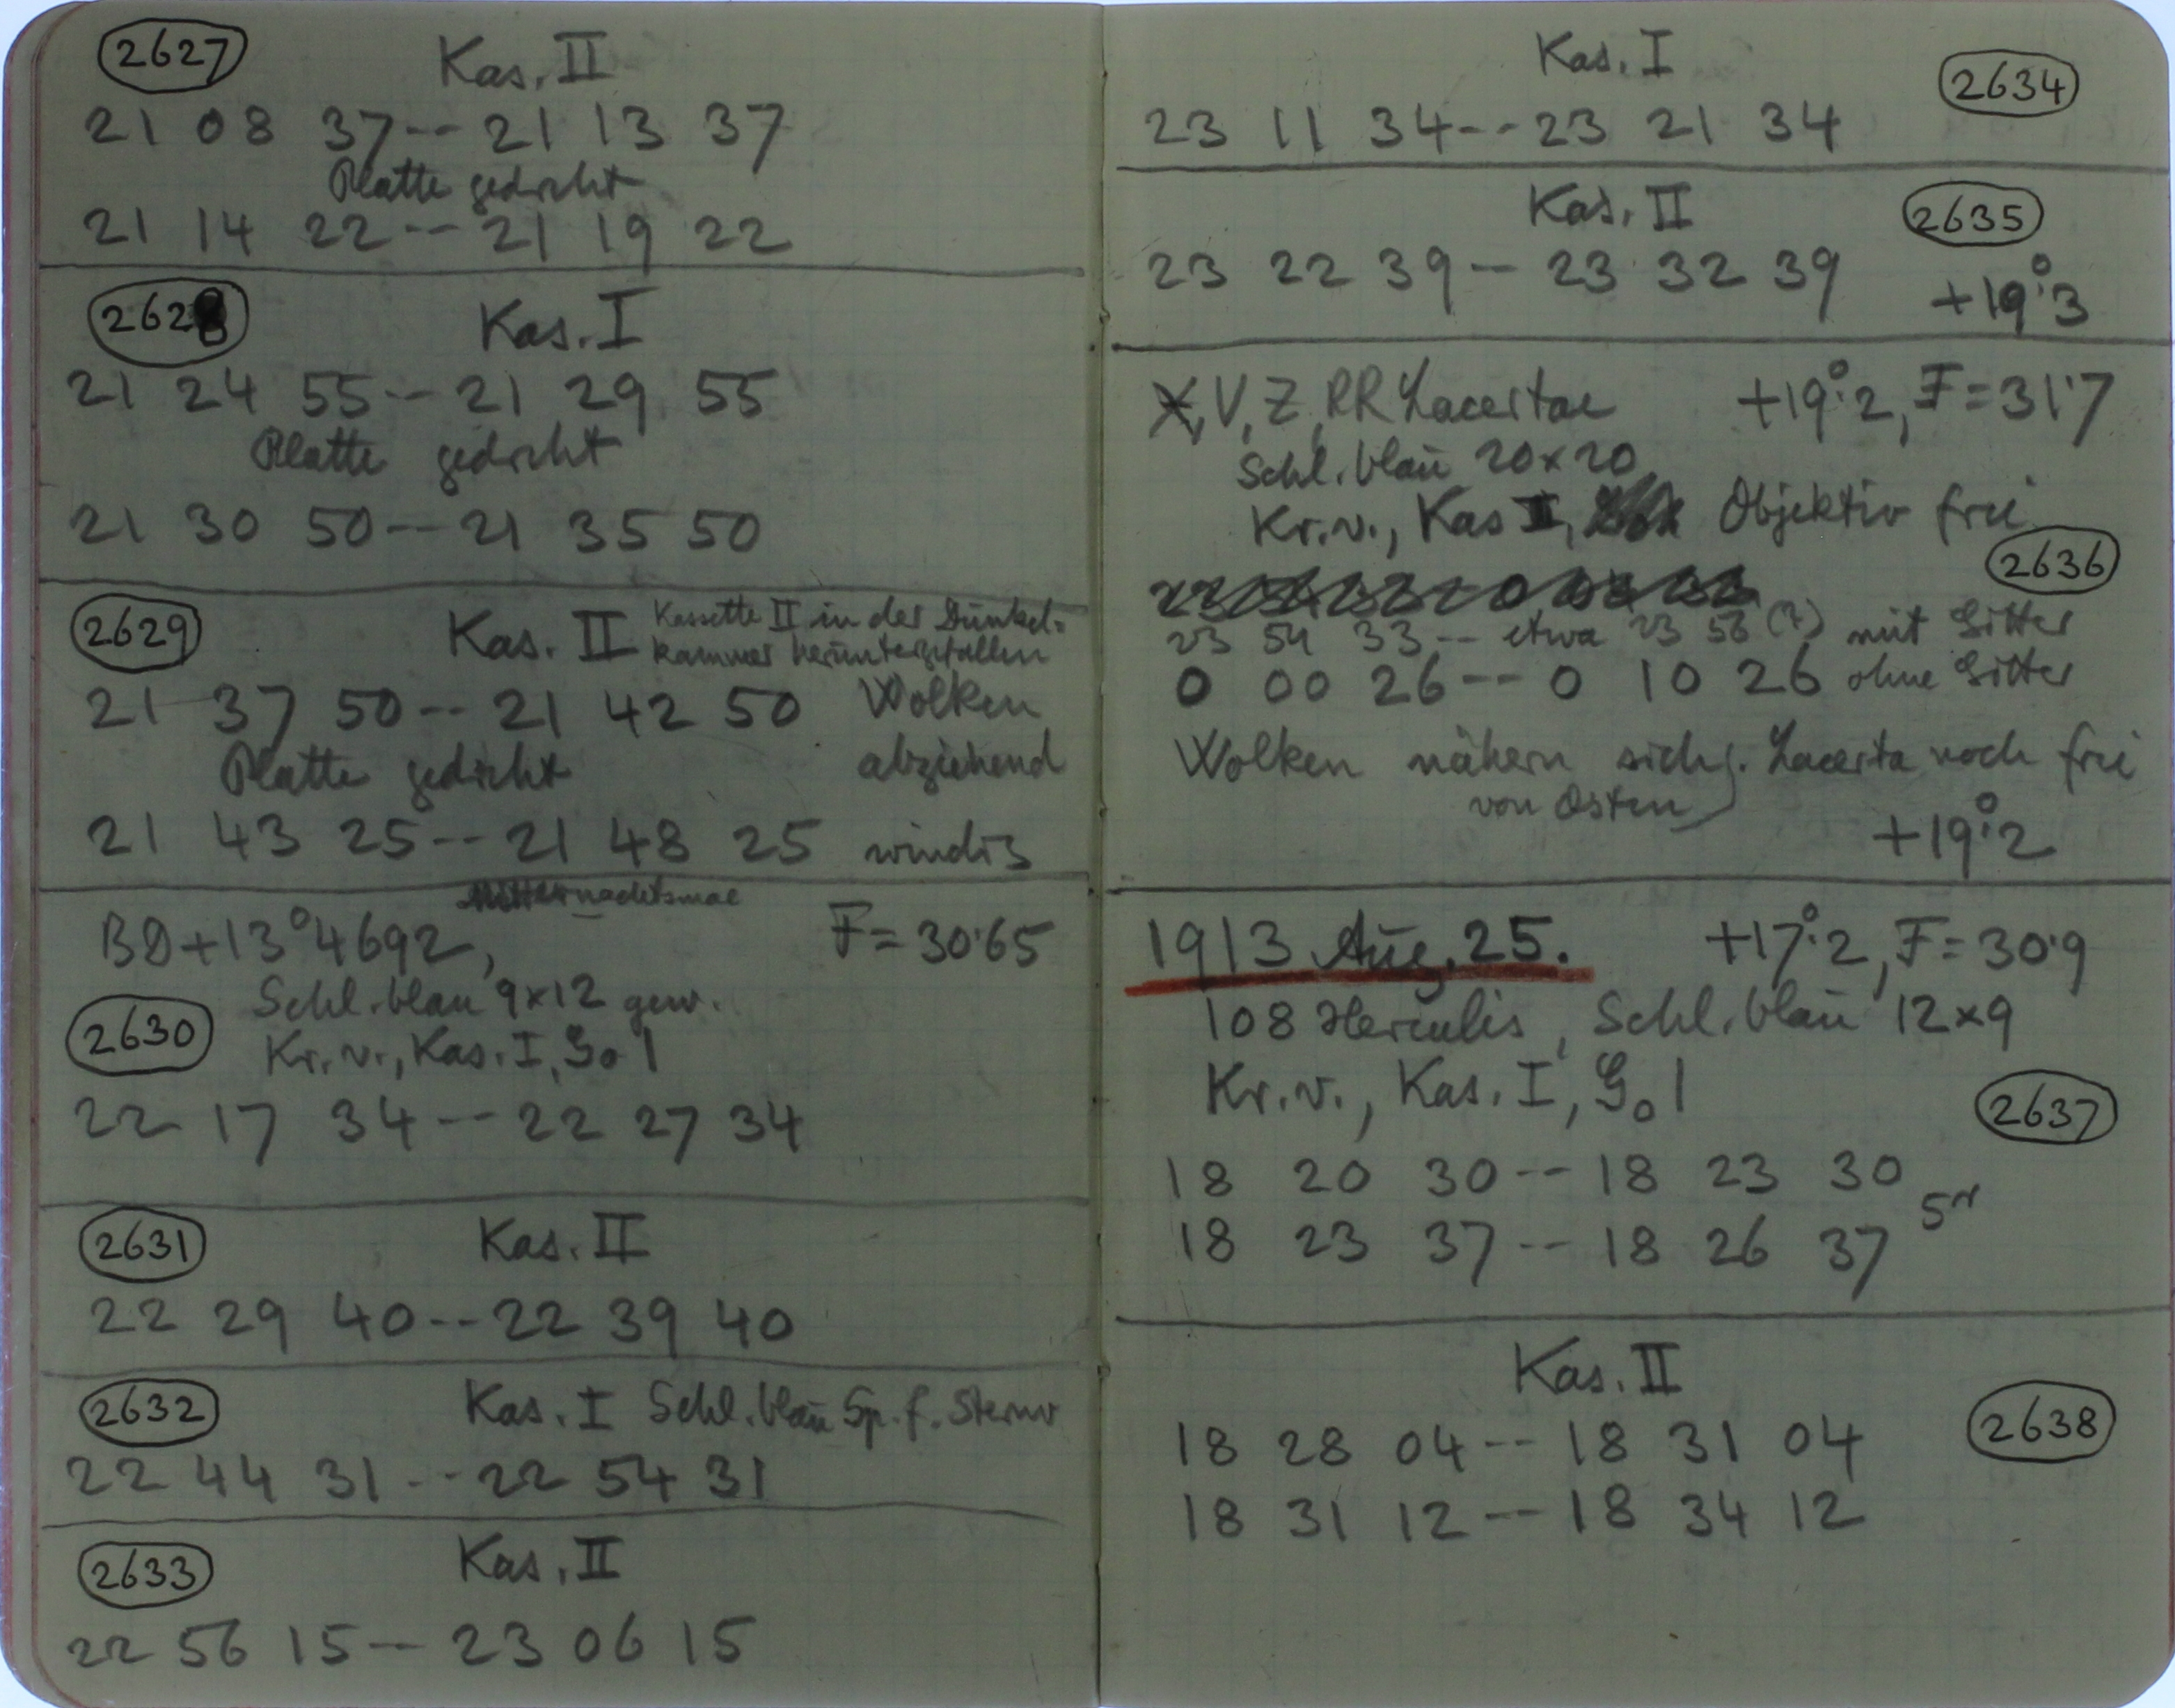 2627 Kas. II
21 08 37 -- 21 13 37
Platte gedreht
21 14 22 -- 21 19 22
2628 Kas. I
21 24 55 -- 21 29 55
Platte gedreht
21 30 50 -- 21 35 50
2629 Kas. II Kassette II in der Dunkel-
kammer heruntergefallen
21 37 50 -- 21 42 50 Wolken
Platte gedreht abziehend
21 43 25 -- 21 48 25 windig
BD+13°4692, F=30.65
Schl. blau 9x12 gew.
2630 Kr. v., Kas. I, G₀ 1
22 17 34 -- 22 27 34
2631 Kas. II
22 29 40 -- 22 39 40
2632 Kas. I Schl. blau Sp. f. Sternw
22 44 31 -- 22 54 31
2633 Kas. II
22 56 15 -- 23 06 15
Kas. I 2634
23 11 34 -- 23 21 34
Kas. II 2635
23 22 39 -- 23 32 39 +19°.3
X, V, Z, RR Lacertae +19°.2, F=31.7
Schl. blau 20x20
Kr. v., Kas II, Objektiv frei
2636
23 54 33 -- etwa 23 58 (?) mit Gitter
0 00 26 -- 0 10 26 ohne Gitter
Wolken nähern sich, Lacerta noch frei
von Osten
+19°.2
1913 Aug. 25. +17°.2, F=30.9
108 Herculis, Schl. blau 12x9
Kr. v., Kas. I, G₀ 1
2637
18 20 30 -- 18 23 30
18 23 37 -- 18 26 37
Kas. II
2638
18 28 04 -- 18 31 04
18 31 12 -- 18 34 12